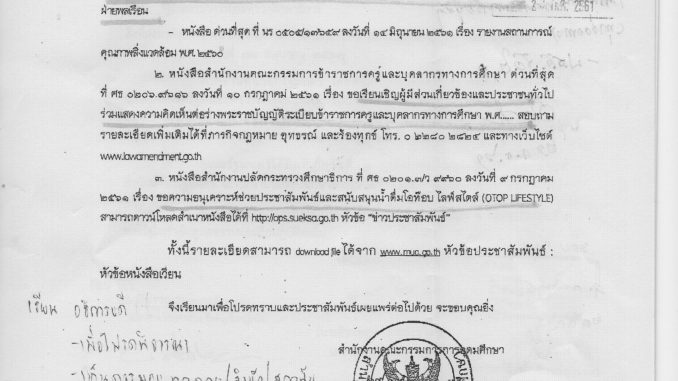 ฝ่ายพลเรือน
- หนังสือ ด่วนที่สุด ที่ นร ๐๕๐๕/ว๓๖๕๙ ลงวันที่ ๑๔ มิถุนายน ๒๕๖๑ เรื่อง รายงานสถานการณ์
คุณภาพสิ่งแวดล้อม พ.ศ. ๒๕๖๐
๒. หนังสือสำนักงานคณะกรรมการข้าราชการครูและบุคลากรทางการศึกษา ด่วนที่สุด
ที่ ศธ ๐๒๐๖.๙/๖๑๖ ลงวันที่ ๑๐ กรกฎาคม ๒๕๖๑ เรื่อง ขอเรียนเชิญผู้มีส่วนเกี่ยวข้องและประชาชนทั่วไป
ร่วมแสดงความคิดเห็นต่อร่างพระราชบัญญัติระเบียบข้าราชการครูและบุคลากรทางการศึกษา พ.ศ...... สอบถาม
รายละเอียดเพิ่มเติมได้ที่ภารกิจกฎหมาย อุทธรณ์ และร้องทุกข์ โทร. ๐ ๒๒๘๐ ๒๘๒๔ และทางเว็บไซต์
www.lawamendment.go.th
๓. หนังสือสำนักงานปลัดกระทรวงศึกษาธิการ ที่ ศธ ๐๒๐๑.๓/ว ๙๙๖๐ ลงวันที่ ๙ กรกฎาคม
๒๕๖๑ เรื่อง ขอความอนุเคราะห์ช่วยประชาสัมพันธ์และสนับสนุนน้ำดื่มโอท๊อบ ไลฟ์สไตล์ (OTOP LIFESTYLE)
สามารถดาวน์โหลดสำเนาหนังสือได้ที่ http://ops.sueksa.go.th หัวข้อ "ข่าวประชาสัมพันธ์"
ทั้งนี้รายละเอียดสามารถ download file ได้จาก www.mua.go.th หัวข้อประชาสัมพันธ์ :
หัวข้อหนังสือเวียน
จึงเรียนมาเพื่อโปรดทราบและประชาสัมพันธ์เผยแพร่ต่อไปด้วย จะขอบคุณยิ่ง
เรียน อธิการบดี
- เพื่อโปรดพิจารณา
สำนักงานคณะกรรมการการอุดมศึกษา